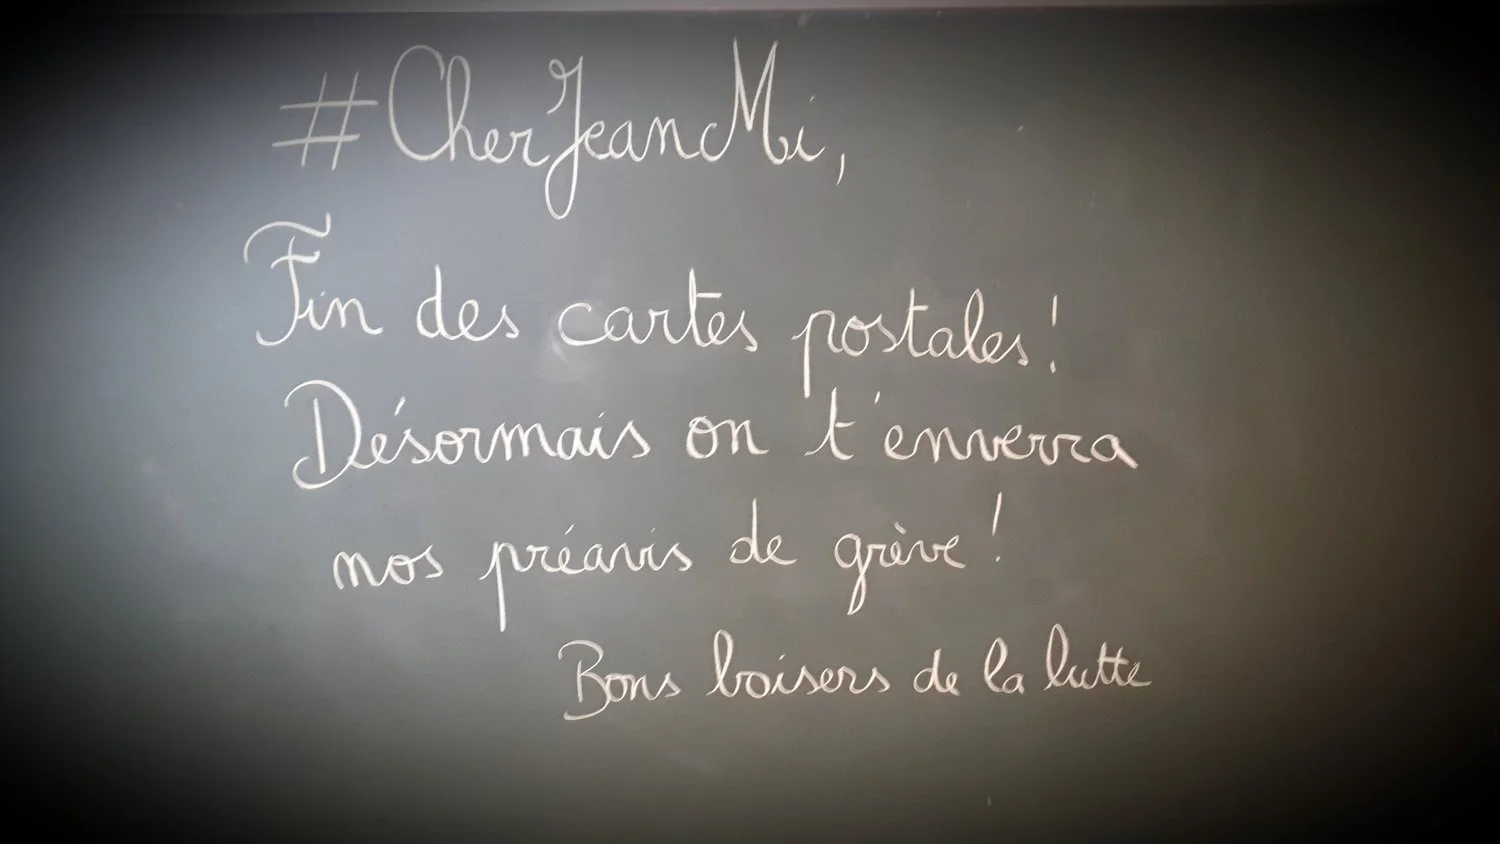 #CherJeanMi,
Fin des cartes postales !
Désormais on t'enverra
nos préavis de grève !
Bons boisers de la lutte